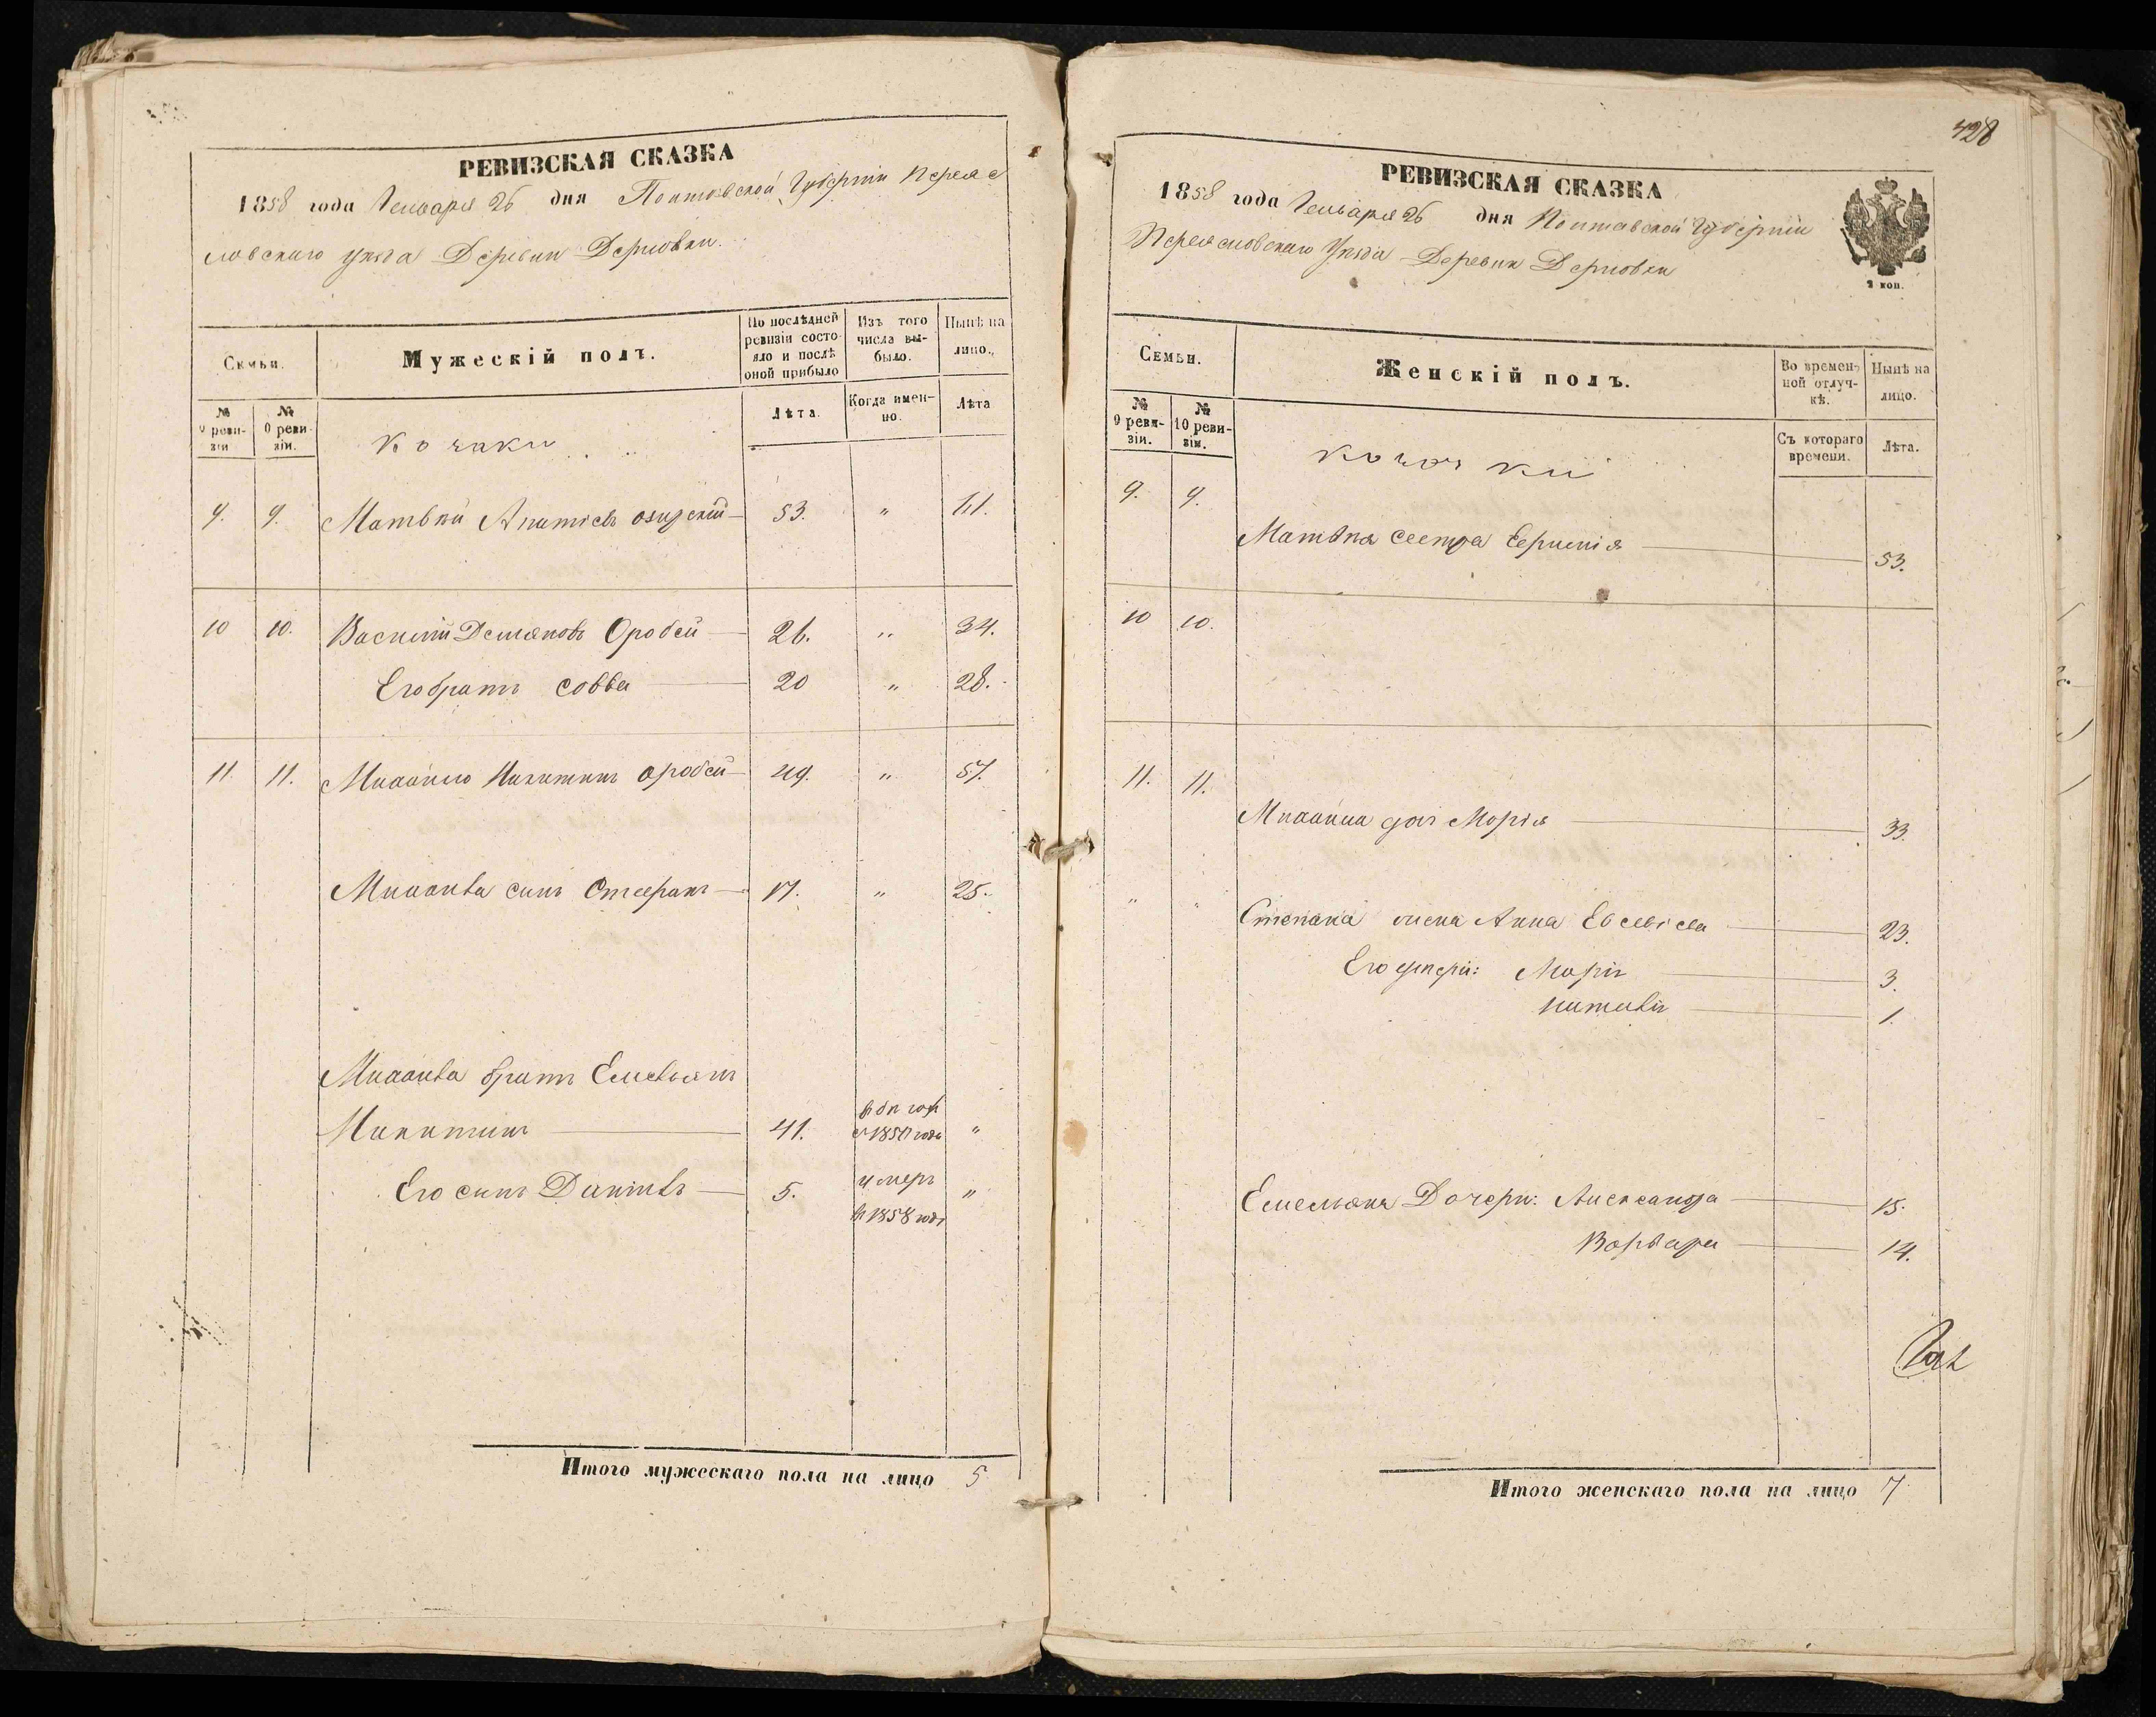 428
РЕВИЗСКАЯ СКАЗКА
1858 года Генваря 26 дня Полтавской Губерніи Переяс
ловскаго уезда Деревни Дерновки.
Семьи.
Мужескій полъ.
По послѣдней ревизіи состояло и послѣ оной прибыло
Изъ того числа выбыло.
Нынѣ на лицо.
№ 9 ревизіи
№ 10 ревизіи.
Козаки
Лѣта.
Когда именно.
Лѣта
9. 9. Матвѣй 53. " 61.
10 10. Василій Демяновъ Оробей 26. " 34.
Его братъ Совва 20 " 28.
11. 11. Михайло Никитинъ Оробей 49. " 57.
Михайла синъ Стефанъ 17. " 25.
Михайла братъ Емельянъ
Никитинъ 41. 1850 года "
Его синъ Данілъ 5. умеръ "
в 1858 годѣ
Итого мужескаго пола на лицо 5
РЕВИЗСКАЯ СКАЗКА
1858 года Генваря 26 дня Полтавской Губерніи
Переясловскаго Уезда Деревни Дерновки
2 коп.
Семьи.
Женскій полъ.
Во временной отлучкѣ.
Нынѣ на лицо.
№ 9 ревизіи.
№ 10 ревизіи.
Козачки
Съ котораго времени.
Лѣта.
9. 9.
Матвѣя сестра 53.
10 10.
11. 11.
Михайла доч Марія 33.
" " Степана жена Анна Евсевіева 23.
Его дочери: Марія 3.
Наталія 1.
Емельяна Дочери: Александра 15.
Варвара 14.
Итого женскаго пола на лицо 7.